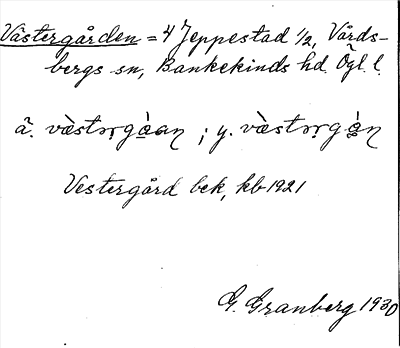 Västergården = 4 Jeppestad 1/2, Vårds-
bergs sn, Bankekinds hd. Ögl. l.
ä. vàstərgȧ̀an ; y. vàstərgȧ̀n
Vestergård bek, kb 1921
G. Granberg 1930